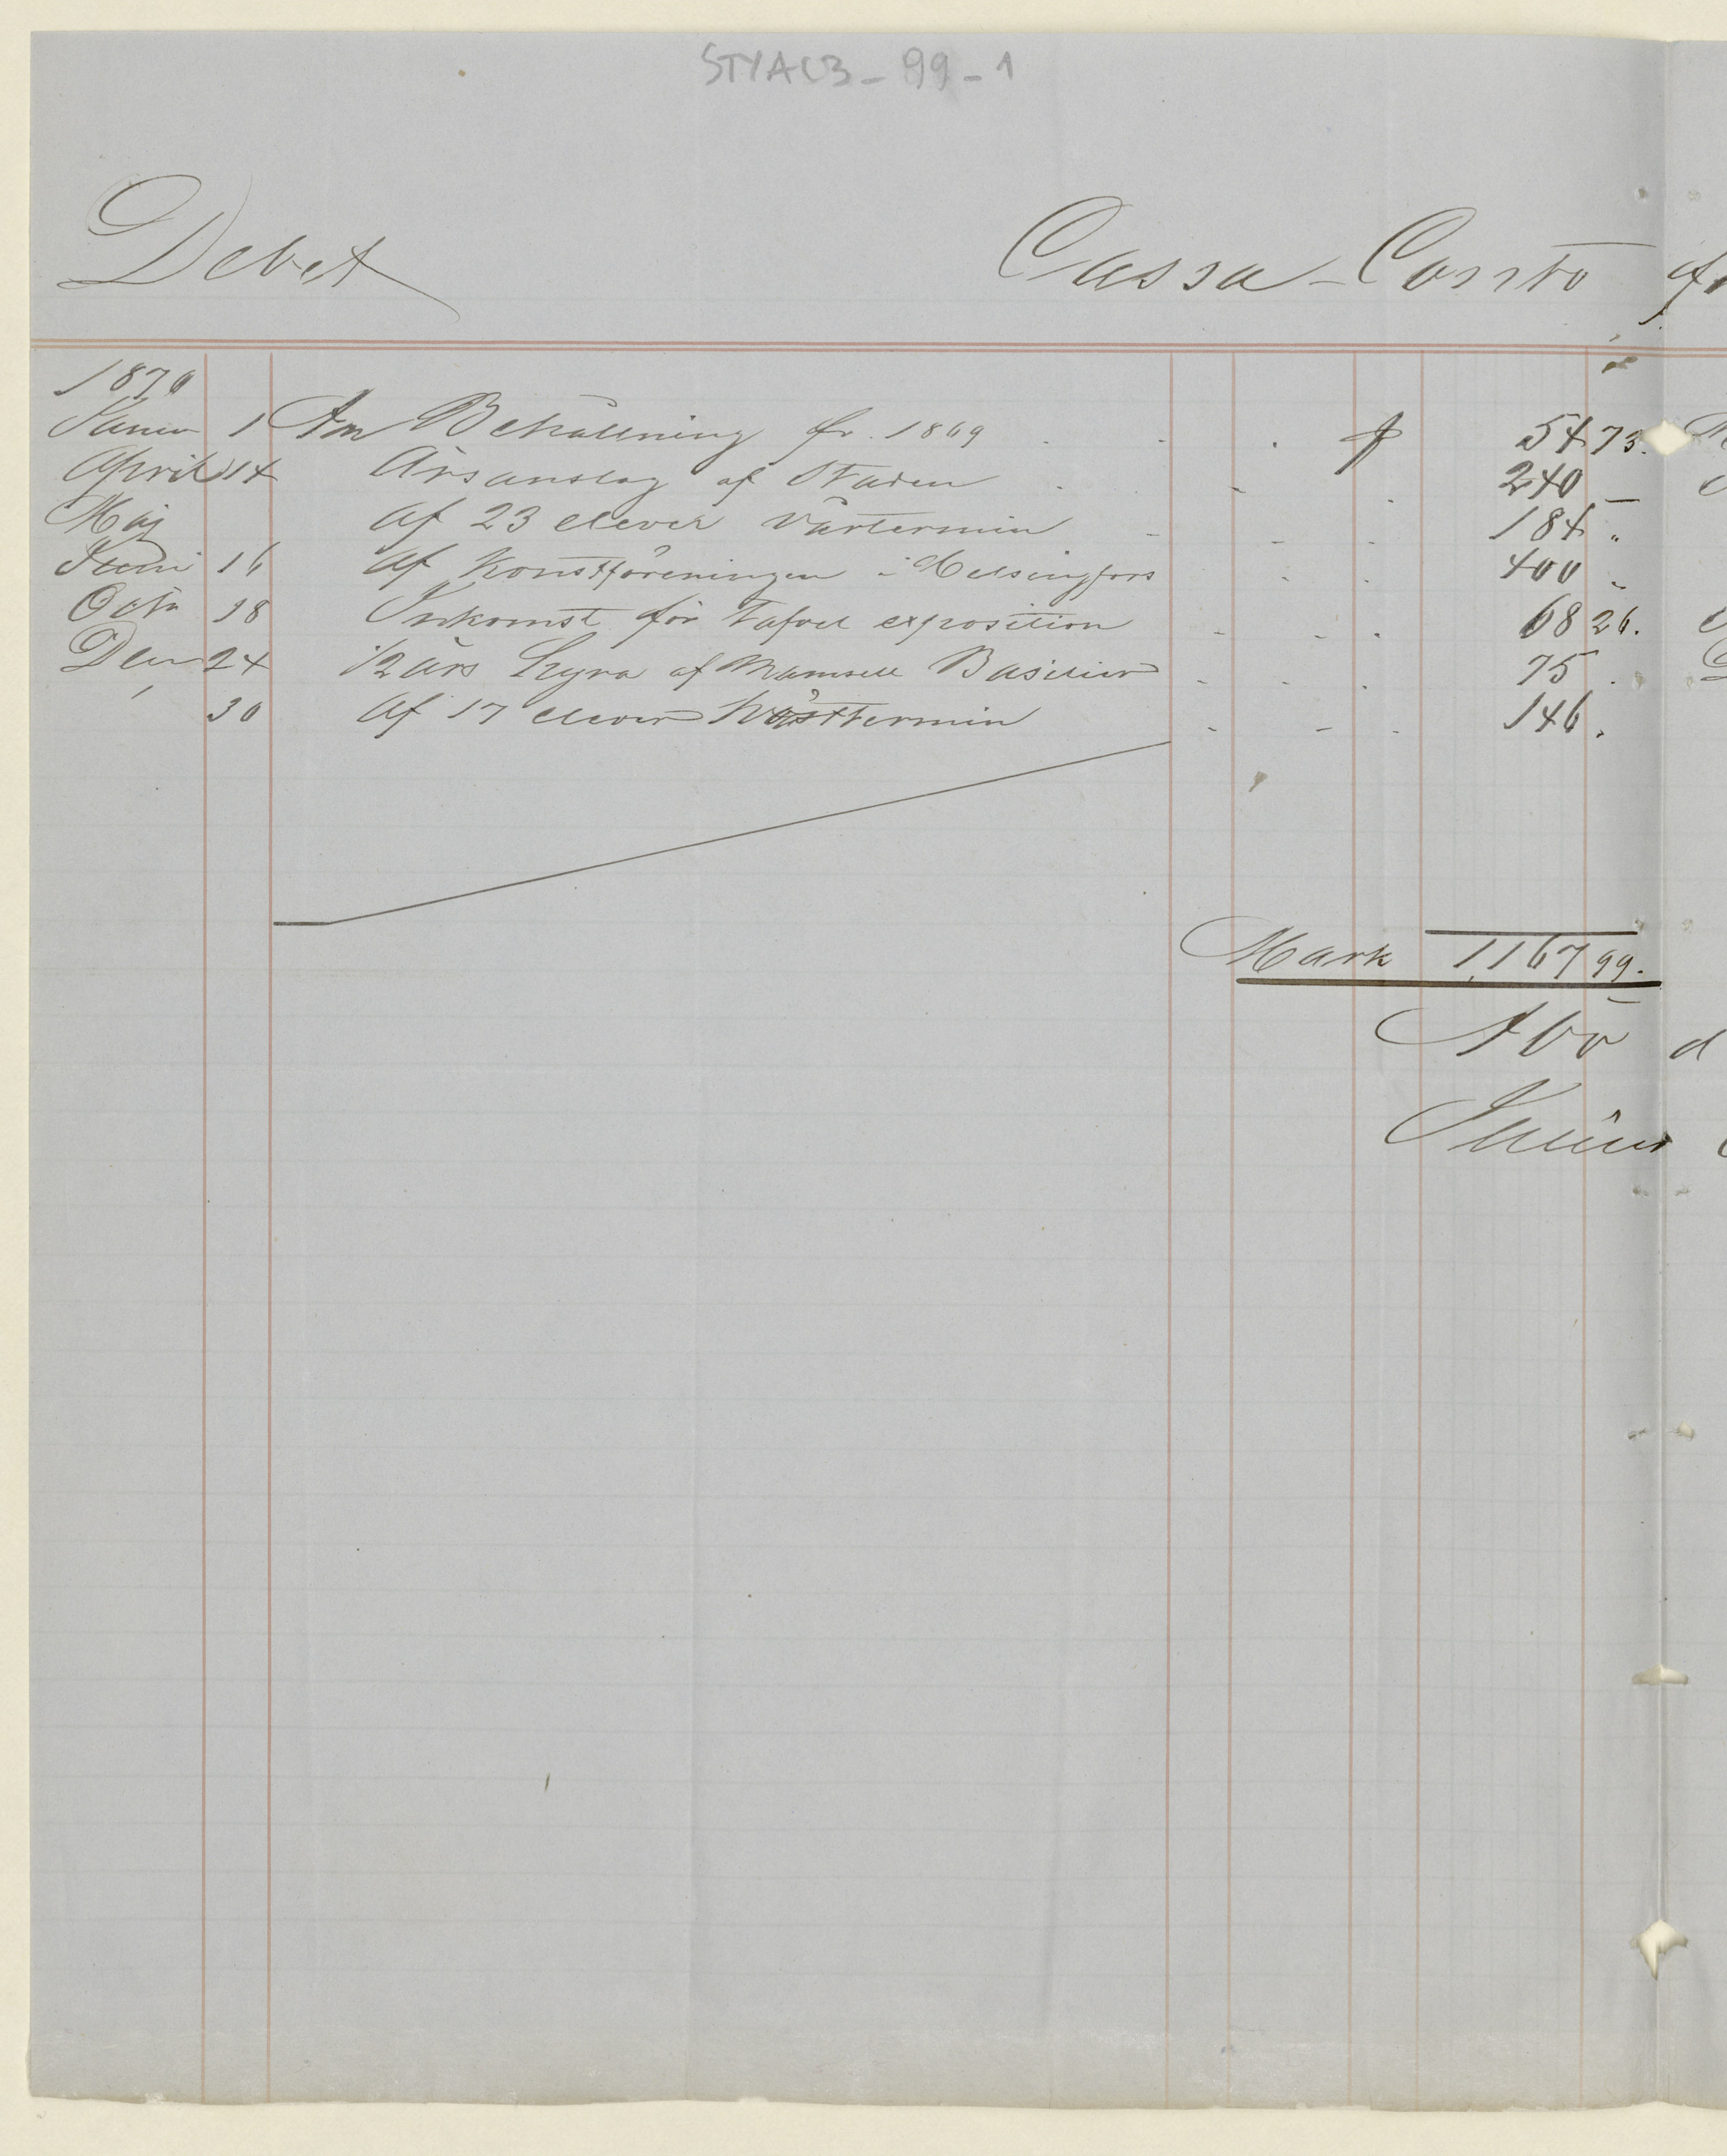 STYAC3-99-1
Debet Cassa-Conto
1870
Januari 1 An Behållning fr. 1869 . . . f 54 73.
April 14 Årsanslag af Staden - - . 240 —
Maj Af 23 elever Vårtermin - - - 184 "
Juni 16 Af Konstföreningen i Helsingfors - - 400 -
Octr 18 Inkomst för Tafvel exposition - - . 68 26.
Dec 24 1/2 års Hyra af Mamsell Basilier - - . 75 .
" 30 Af 17 elever Hösttermin - - - 146 .
Mark 1,167 99.
Åbo d